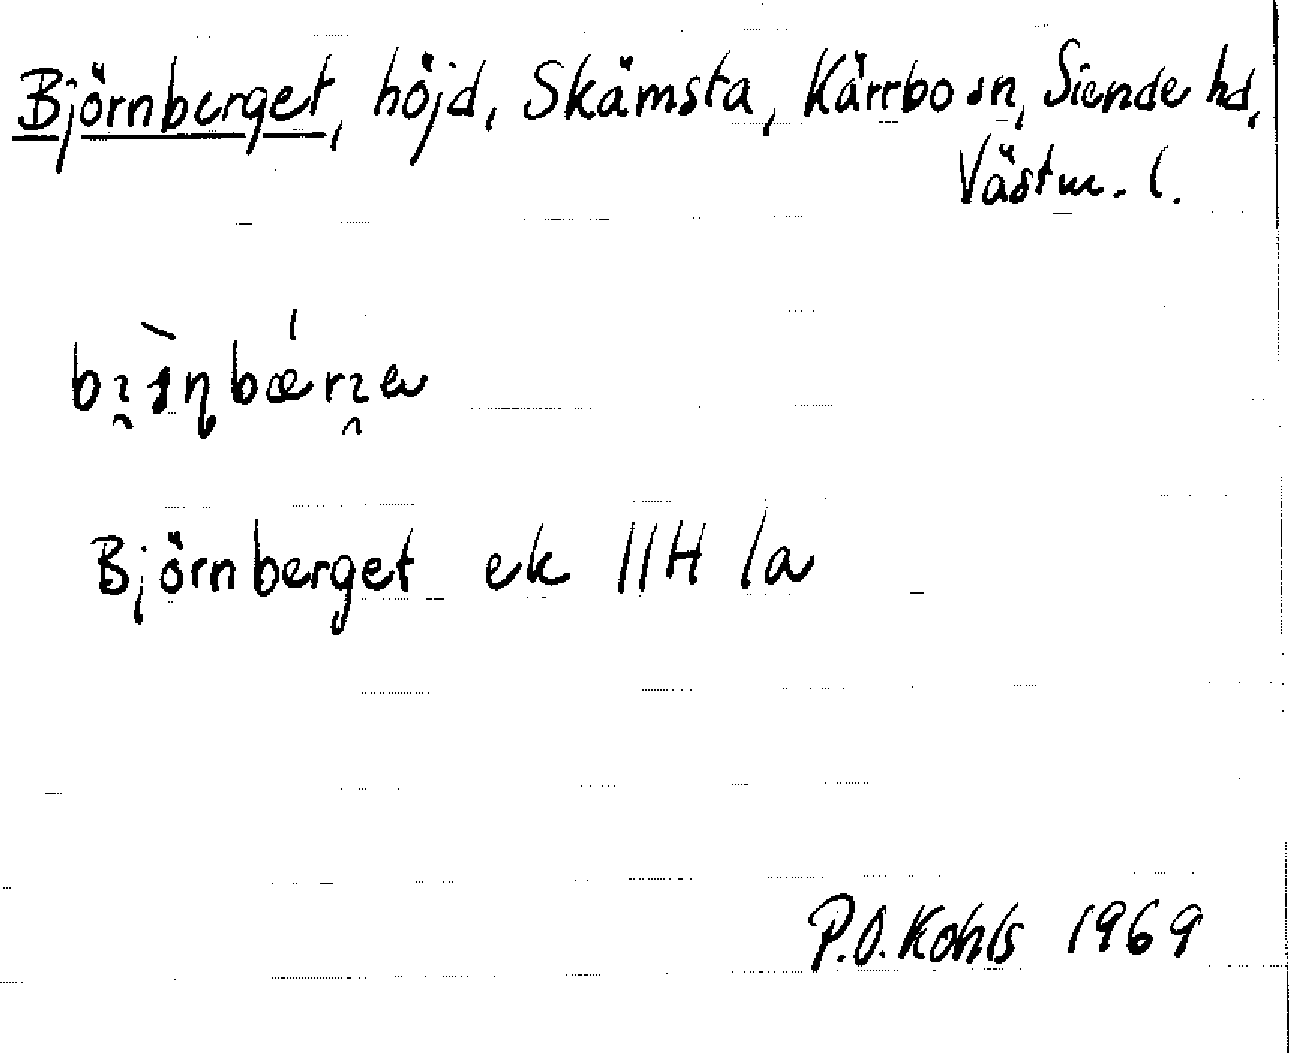 Björnberget, höjd, Skämsta, Kärrbo sn, Siende hd,
Västm. l.
Björnberget ek 11H 1a
P.O. Kohls 1969